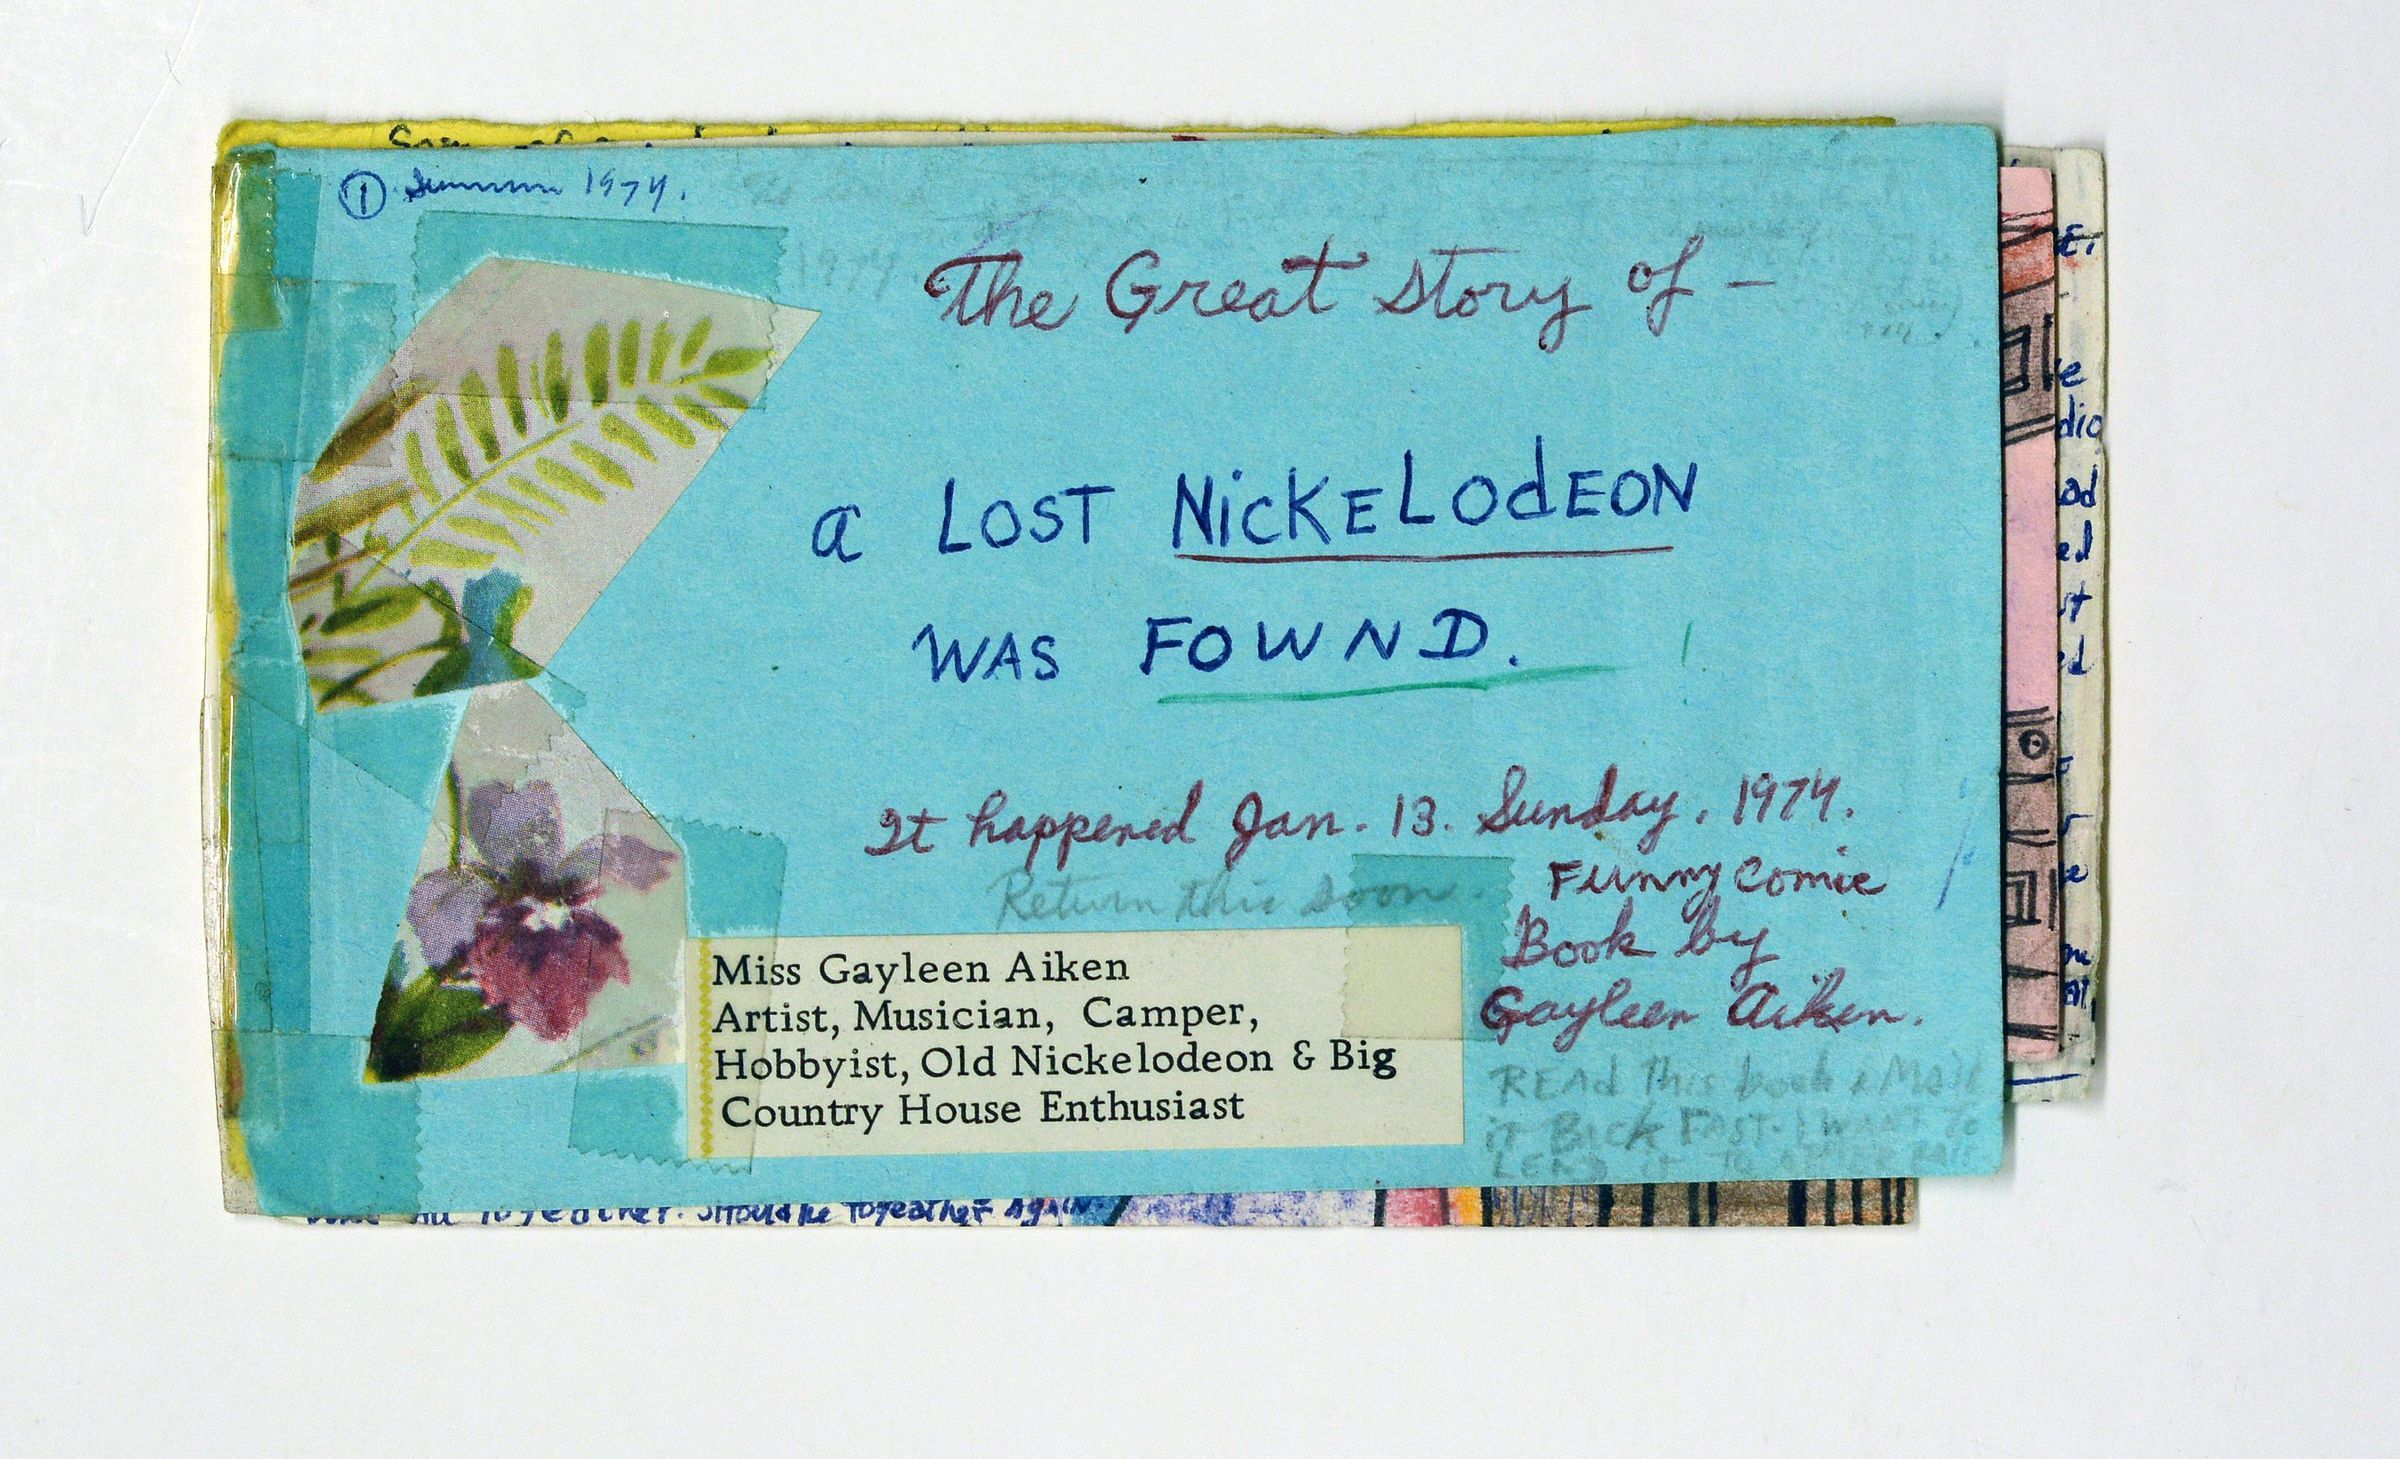 ① Summer 1974.
1974.
The Great Story of –
a LOST NiCKELOdEON
WAS FOWND. !
It happened Jan. 13. Sunday. 1974.
Return this soon.
Funny Comic
Book by
Gayleen Aiken.
Miss Gayleen Aiken
Artist, Musician, Camper,
Hobbyist, Old Nickelodeon & Big
Country House Enthusiast
READ This book & Mail
it BACK FAST. I WANT To
LEND it To
All TogeatheR. Should be TogeatheR AgAiN.